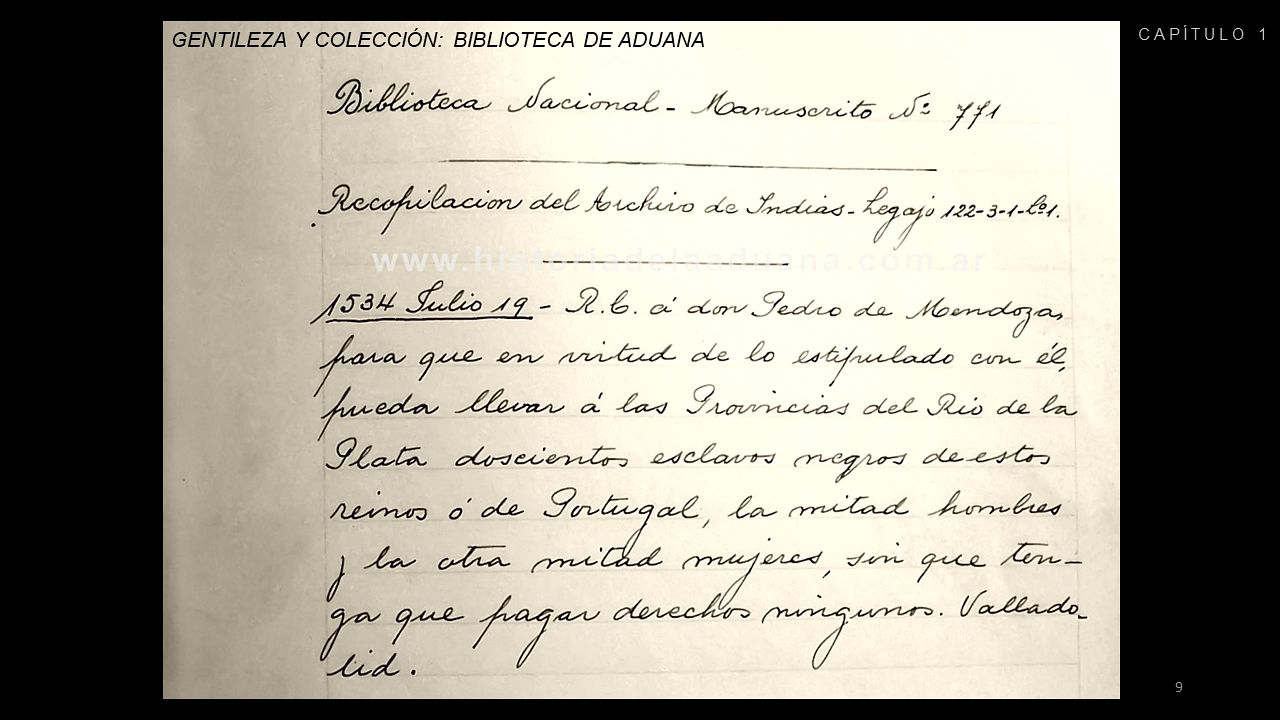 GENTILEZA Y COLECCIÓN: BIBLIOTECA DE ADUANA
CAPÍTULO 1
Biblioteca Nacional - Manuscrito Nº 771
Recopilacion del Archivo de Indias - Legajo 122-3-1-Lº1.
www.historiadelaaduana.com.ar
1534 Julio 19 - R.C. á don Pedro de Mendoza,
para que en virtud de lo estipulado con él,
pueda llevar á las Provincias del Rio de la
Plata doscientos esclavos negros de estos
reinos ó de Portugal, la mitad hombres
y la otra mitad mujeres, sin que ten-
ga que pagar derechos ningunos. Vallado-
lid.
9